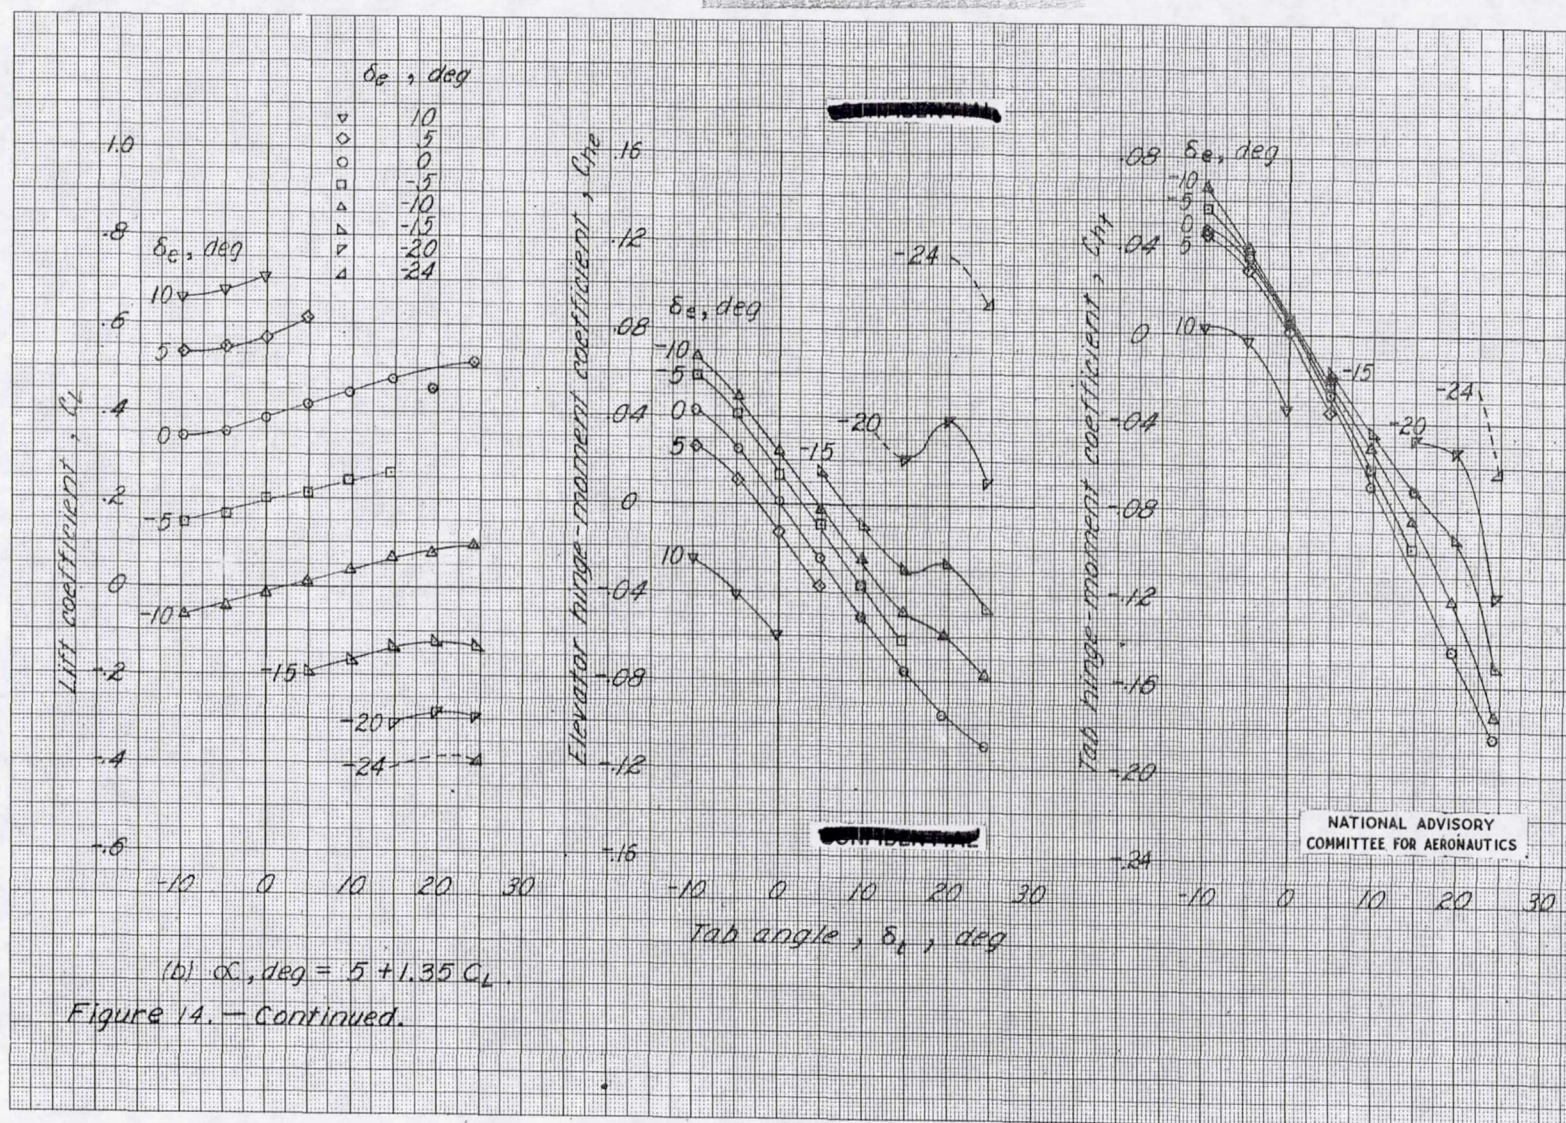 δe , deg
10
5
0
-5
-10
-15
-20
-24
Lift coefficient , CL
1.0
.8
.6
.4
.2
0
-.2
-.4
-.6
δe, deg
10
5
0
-5
-10
-15
-20
-24
-10 0 10 20 30
Elevator hinge-moment coefficient , Che
.16
.12
.08
.04
0
-.04
-.08
-.12
-.16
δe, deg
-10
-5
0
5
10
-15
-20
-24
-10 0 10 20 30
Tab hinge-moment coefficient , Cht
.08
.04
0
-.04
-.08
-.12
-.16
-.20
-.24
δe, deg
-10
-5
0
5
10
-15
-20
-24
-10 0 10 20 30
Tab angle , δt , deg
NATIONAL ADVISORY
COMMITTEE FOR AERONAUTICS
(b) α, deg = 5 + 1.35 CL .
Figure 14. — Continued.